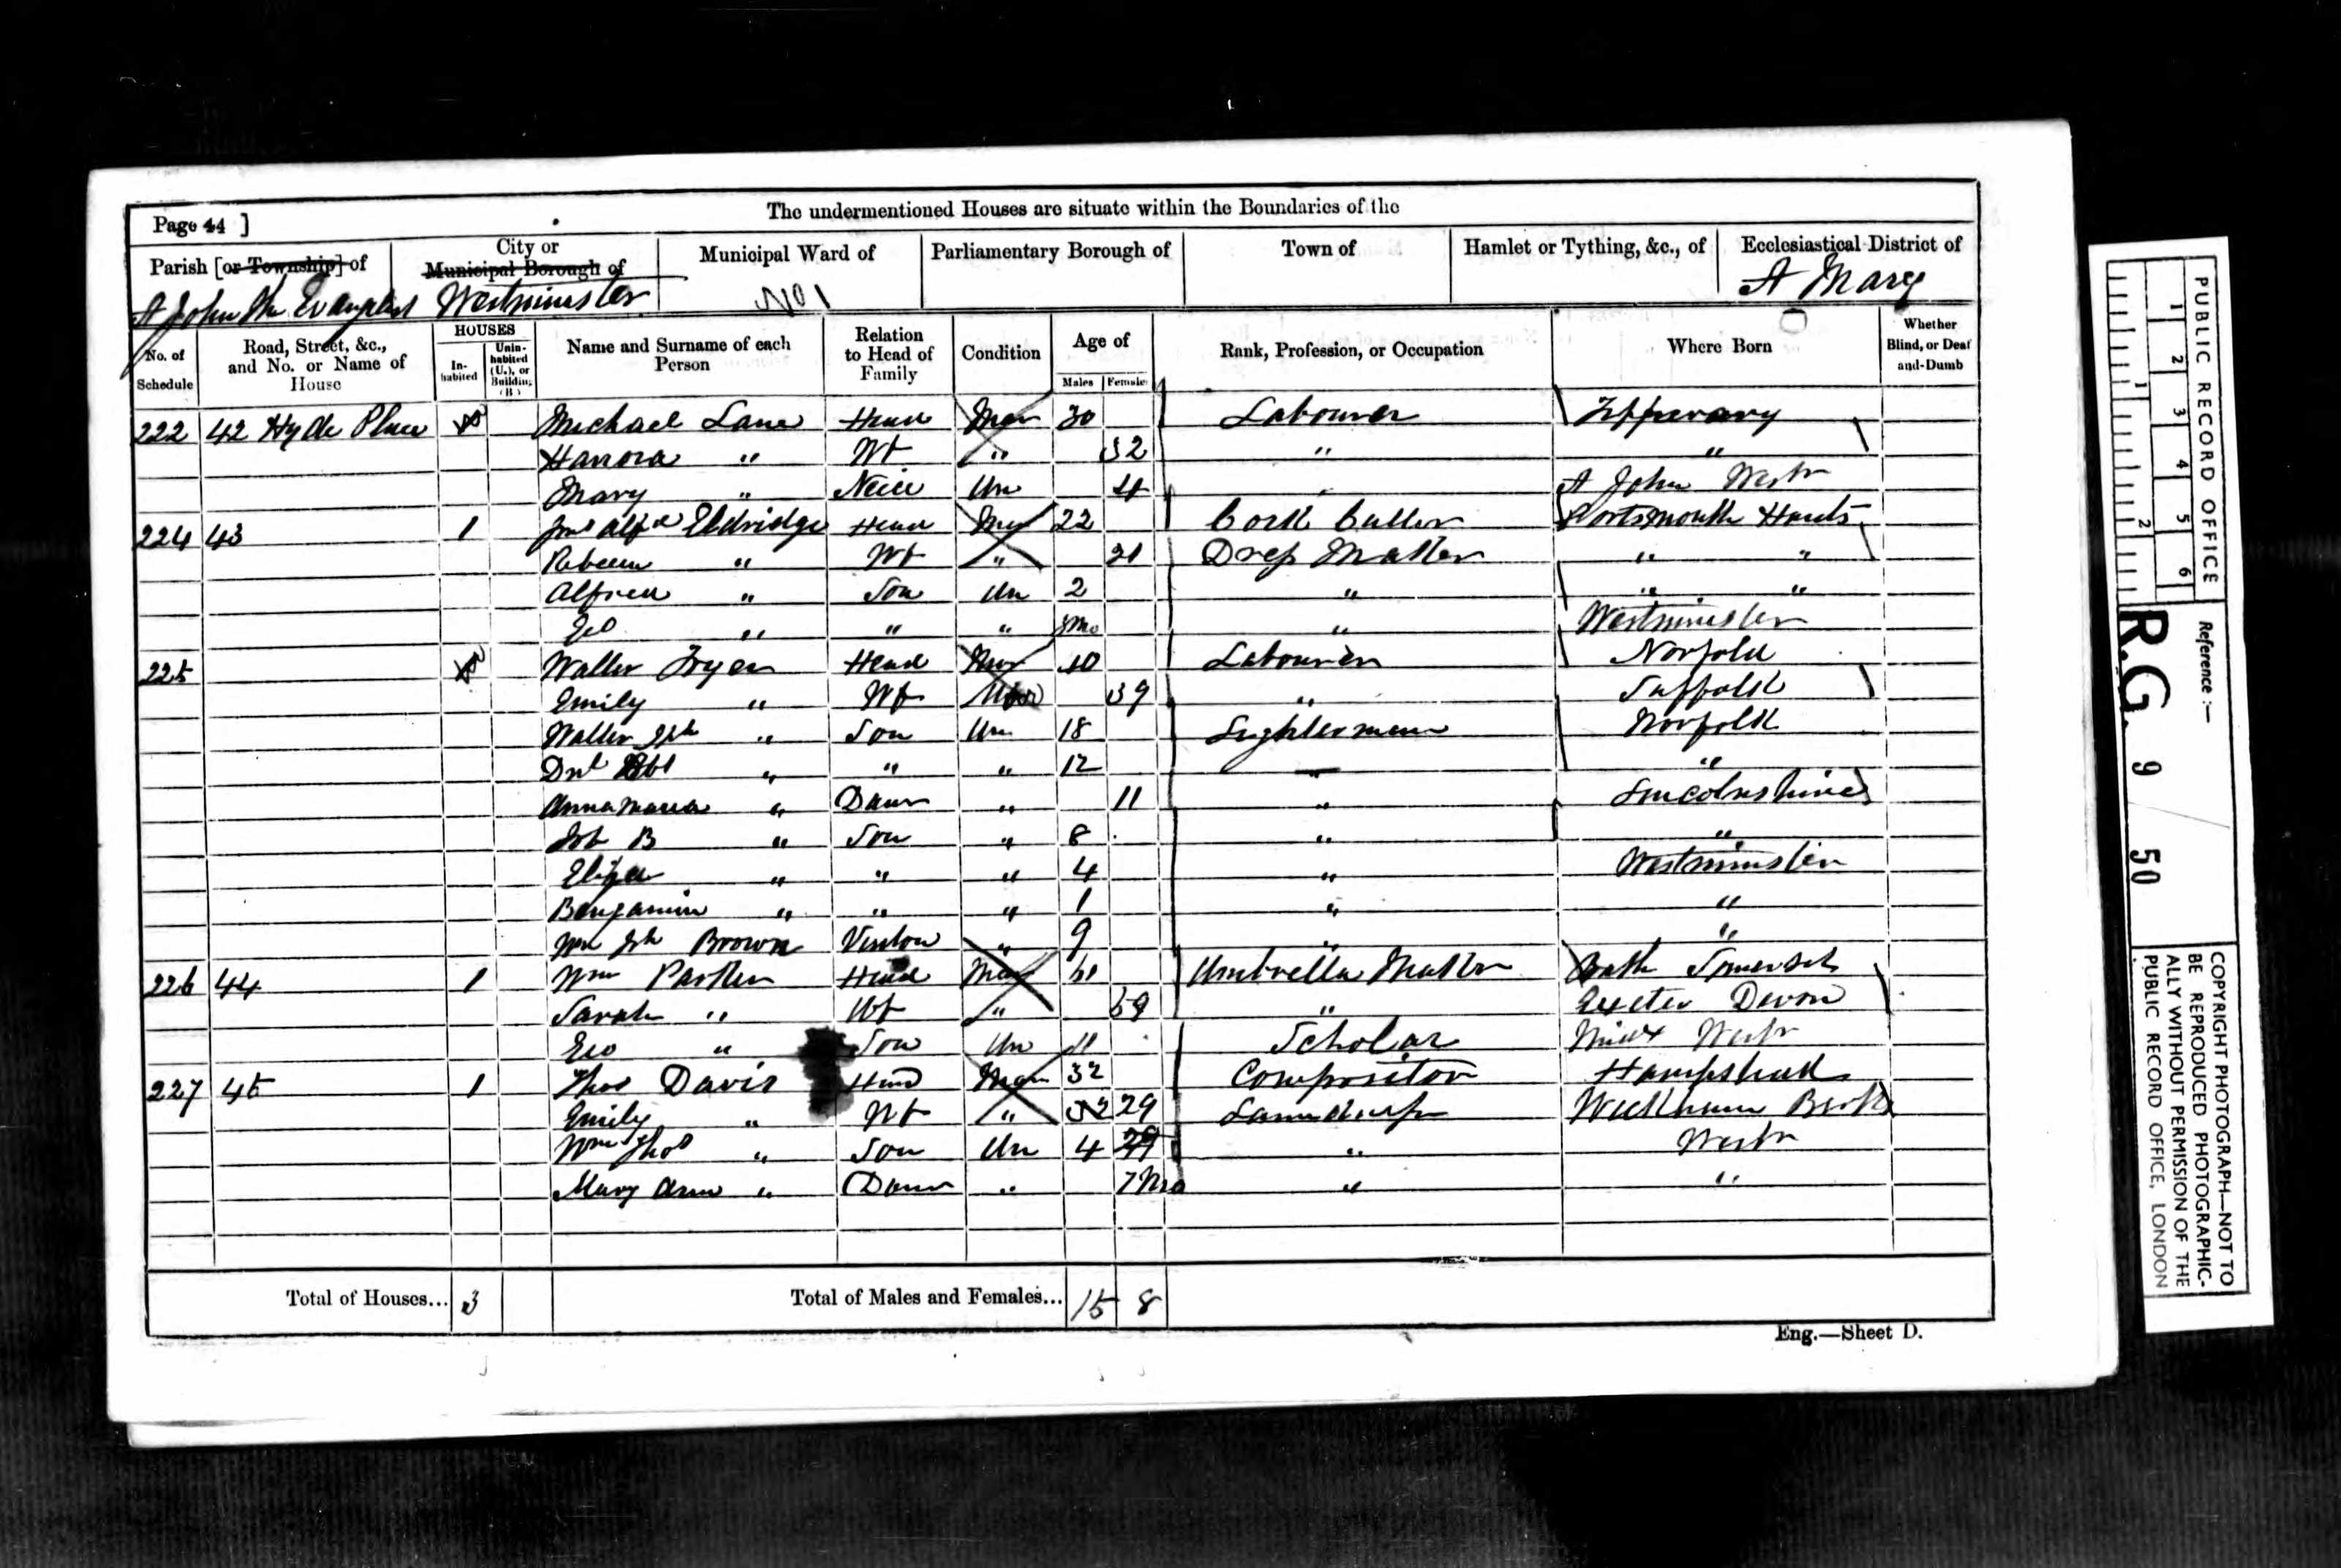 Page 44 ]
The undermentioned Houses are situate within the Boundaries of the
Parish [or Township] of
City or Municipal Borough of
Municipal Ward of
Parliamentary Borough of
Town of
Hamlet or Tything, &c., of
Ecclesiastical District of
St John the Evangelist Westminster No 1 St Mary
No. of Schedule
Road, Street, &c., and No. or Name of House
HOUSES
In-habited
Unin-habited (U.), or Building (B.)
Name and Surname of each Person
Relation to Head of Family
Condition
Age of
Males Females
Rank, Profession, or Occupation
Where Born
Whether Blind, or Deaf and-Dumb
222 42 Hyde Place Michael Lane Head Mar 30 Labourer Tipperary
Hanora " Wf " 32 " "
Mary " Neice Un 4 St John Westr
224 43 1 Jno Alfd Eldridge Head Mar 22 Cork Cutter Portsmouth Hants
Rebecca " Wf " 21 Dress Maker " "
Alfred " Son Un 2 " " "
Geo " " " 3mo " Westminster
225 Walter Fryer Head Mar 40 Labourer Norfolk
Emily " Wf 39 " Suffolk
Walter Jph " Son Un 18 Lighterman Norfolk
Dnl " " " 12 " "
Anna Maria " Daur " 11 " Lincolnshire
Job B " Son " 8 " "
Eliza " " " 4 " Westminster
Benjamin " " " 1 " "
Wm Jph Brown Visitor " 9 " "
226 44 1 Wm Parker Head Mar 61 Umbrella Maker Bath Somerset
Sarah " Wf " 59 " Exeter Devon
Geo " Son Un 11 Scholar Middx Westr
227 45 1 Thos Davis Head Mar 32 Compositor Hampstead
Emily " Wf " 32 29 Wickham Berks
Wm Thos " Son Un 4 29 " Westr
Mary Ann " Daur " 7Mo " "
Total of Houses... 3
Total of Males and Females... 15 8
Eng.—Sheet D.
PUBLIC RECORD OFFICE
1 2 3 4 5 6
1 2
Reference :—
R.G. 9 50
COPYRIGHT PHOTOGRAPH—NOT TO
BE REPRODUCED PHOTOGRAPHIC-
ALLY WITHOUT PERMISSION OF THE
PUBLIC RECORD OFFICE, LONDON